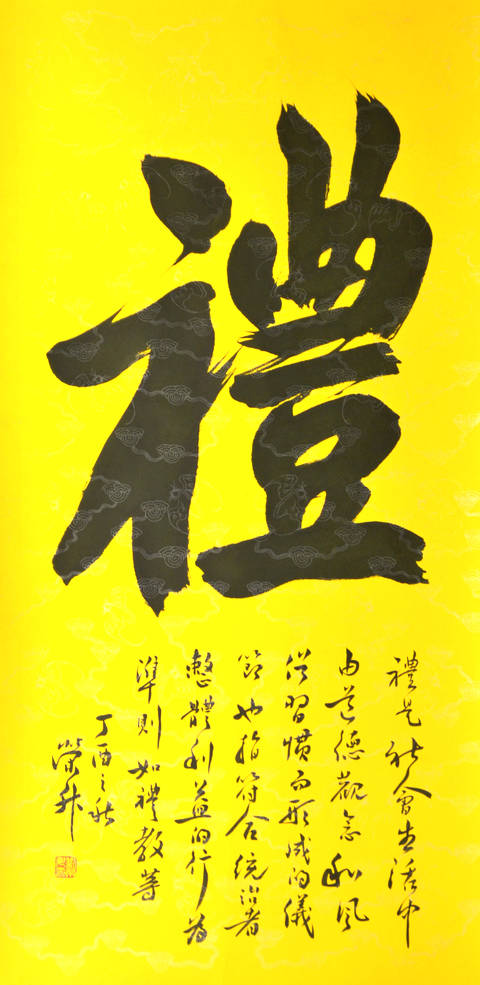 禮
禮是社會生活中
由道德觀念和風
俗習慣而形成的儀
節也指符合統治者
整體利益的行為
準則如禮教等
丁酉之秋
榮升